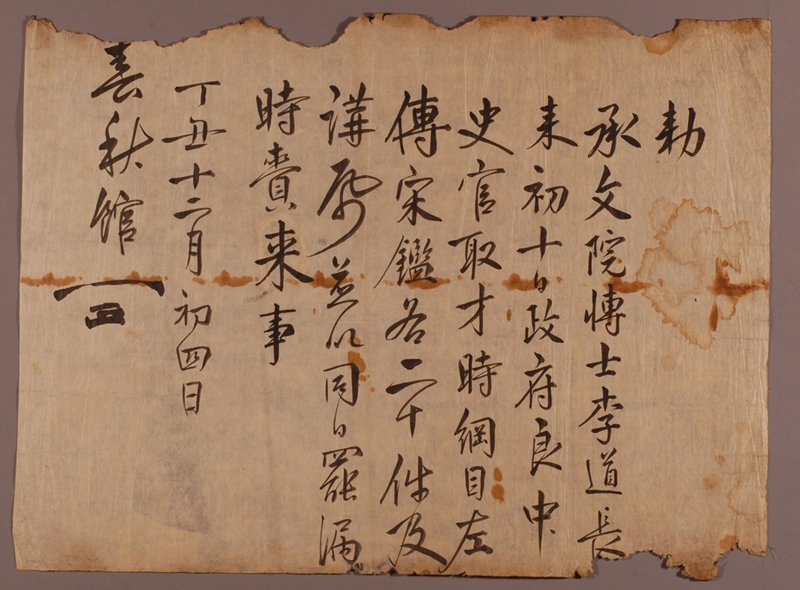 勅
承文院博士李道長
来初十日政府良中
史官取才時綱目左
傳宋鑑各二十件及
講所並以同日罷漏
時賫来事
丁丑十二月初四日
春秋館